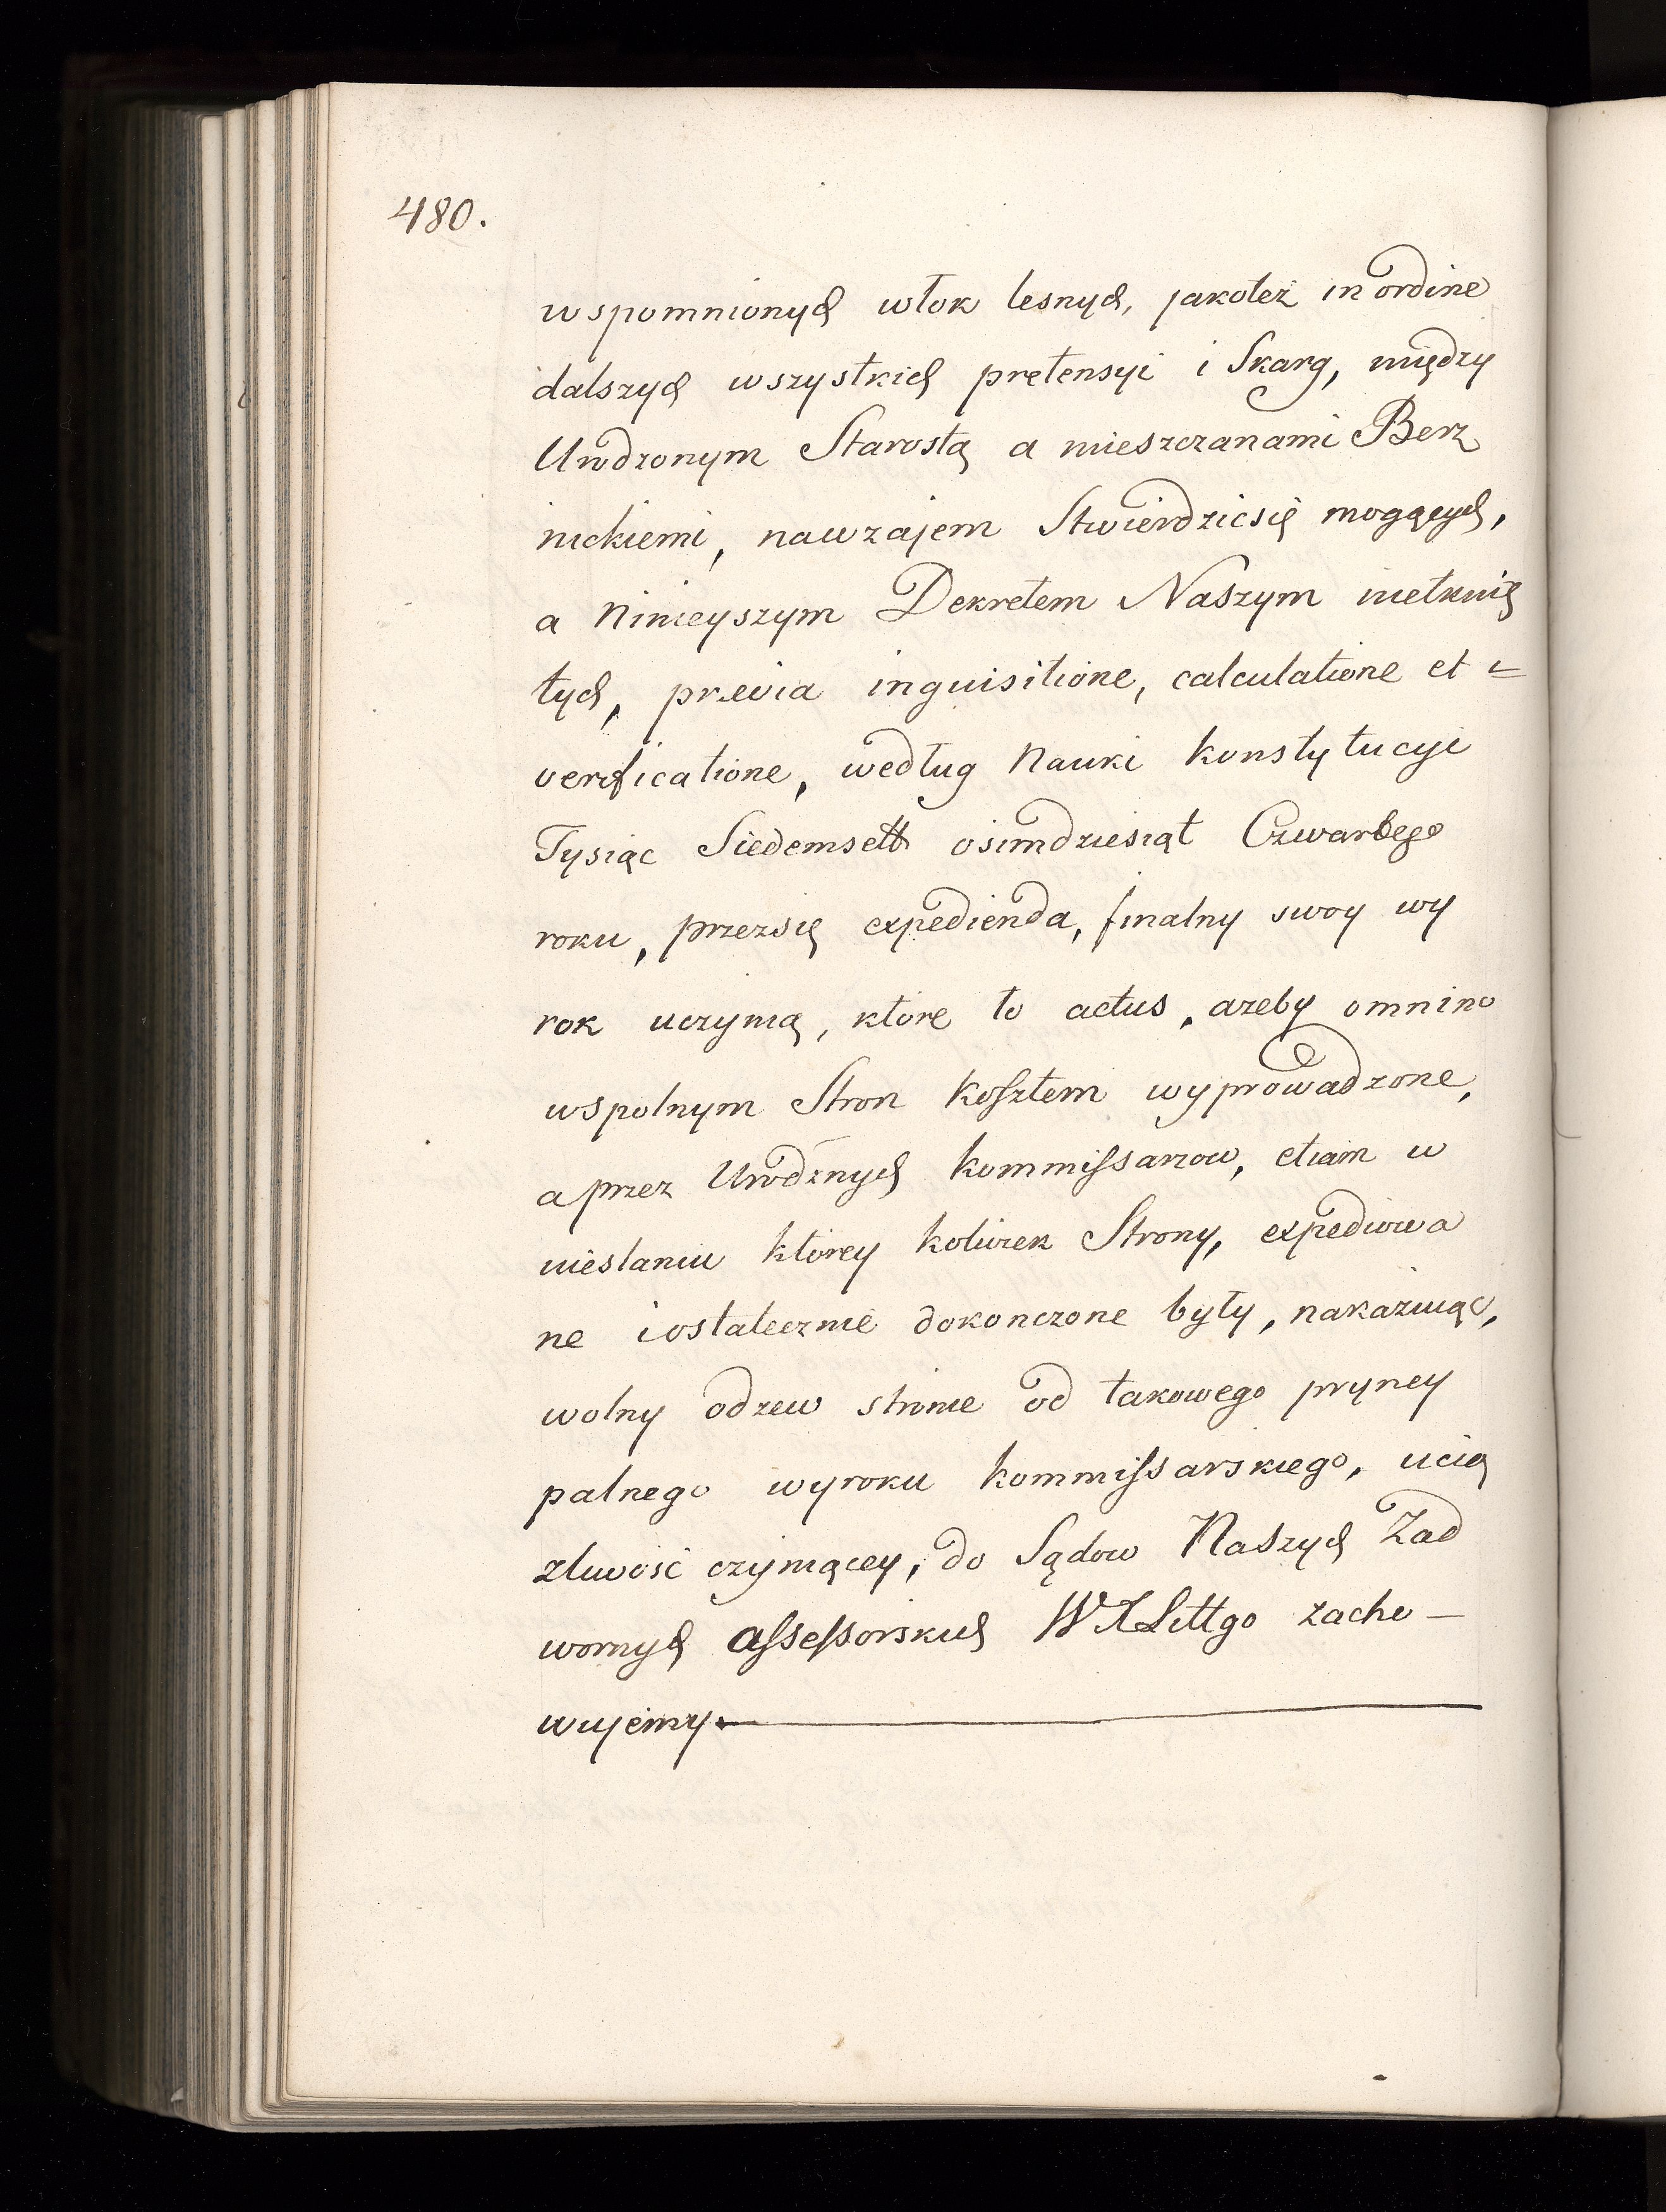 480.
wspomnionych włok lesnych, jakoteż in ordine
dalszych wszystkich pretensyi i Skarg, między
Urodzonym Starostą a mieszczanami Berz
nickiemi, nawzajem Stwierdzicsię mogących,
a Ninieyszym Dekretem Naszym nietknię
tych, prævia inquisitione, calculatione et =
verificatione, według Nauki Konstytucyi
Tysiąc Siedemsett osimdziesiąt Czwartego
roku, przezsię expedienda, finalny swoy wy
rok uczynią, które to actus, azeby omnino
wspolnym Stron Kosztem wyprowadzone,
a przez Urodznych Kommissarzow, etiam w
niestaniu którey kolwiek Strony, expediowa
ne i ostatecznie dokonczone były, nakazuiąc,
wolny odzew stronie od takowego pryncy
palnego wyroku Kommissarskiego, ucią
zliwość czyniącey, do Sądow Naszych Zad
wornych assessorskich WXLittgo zacho –
wujemy.